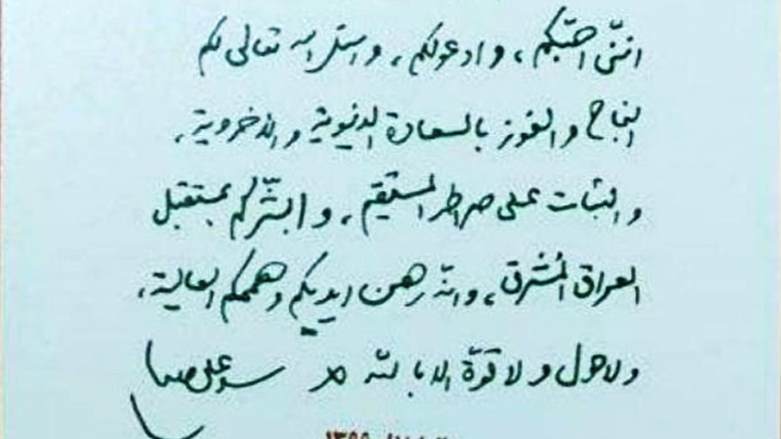 انني احبّكم، وادعولكم، واسئل الله تعالى لكم
النجاح والفوز بالسعادة الدنيوية والاخروية،
والثبات على صراط المستقيم، وابشّركم بمستقبل
العراق المُشرق، وانّه رهن ايديكم وهممكم العالية،
ولاحول ولا قوّة الا بالله